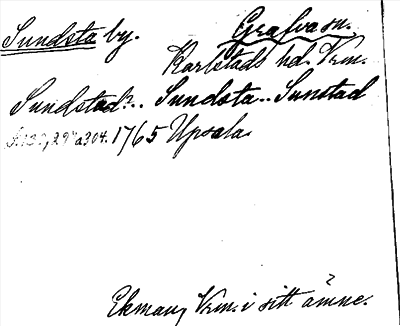 Sundsta by. Grafva sn.
Karlstads hd. Vrm.
Sundstad?.. Sundsta.. Sunstad
1765 Upsala.
Ekman, Vrm. i sitt ämne.